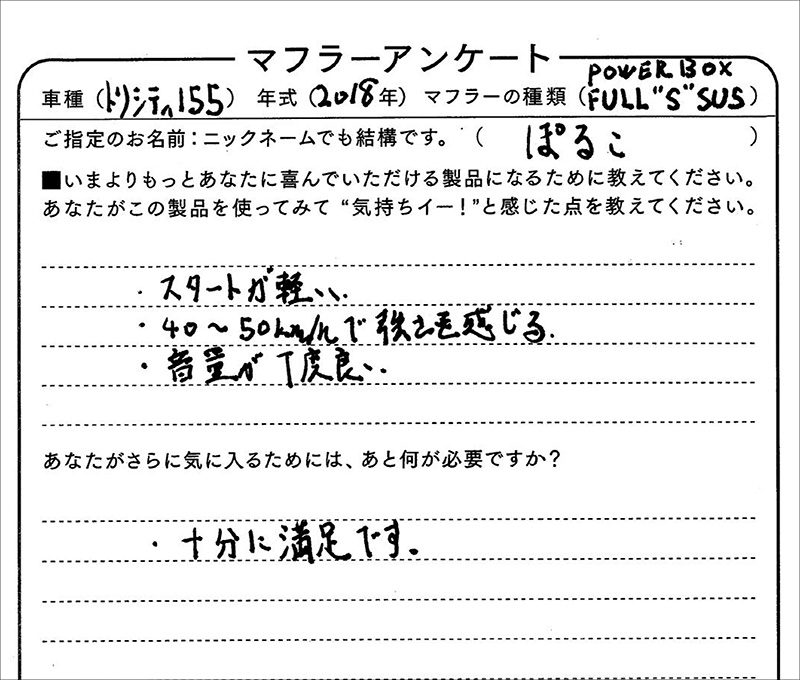 マフラーアンケート
車種（トリシティ155）年式（2018年）マフラーの種類（POWER BOX FULL"S"SUS）
ご指定のお名前：ニックネームでも結構です。（ ぽるこ ）
■いまよりもっとあなたに喜んでいただける製品になるために教えてください。
あなたがこの製品を使ってみて“気持ちイー！”と感じた点を教えてください。
・スタートが軽い、
・40～50km/hで強さを感じる。
・音量が丁度良い。
あなたがさらに気に入るためには、あと何が必要ですか？
・十分に満足です。